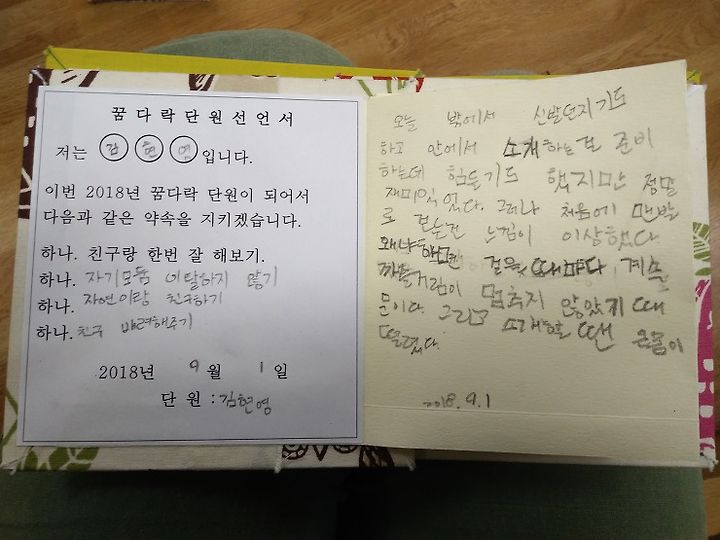 꿈다락단원선언서
저는 김 현 영 입니다.
이번 2018년 꿈다락 단원이 되어서
다음과 같은 약속을 지키겠습니다.
하나. 친구랑 한번 잘 해보기.
하나. 자기모둠 이탈하지 않기
하나. 자연이랑 친구하기
하나. 친구 배려해주기
2018년 9월 1일
단 원 : 김현영
오늘 밖에서 신발던지기도
하고 안에서 소개하는걸 준비
하는데 힘들기도 했지만 정말
재미있었다. 그러나 처음에 맨발
로 걷는건 느낌이 이상했다
왜냐하면 걸을때마다 계속
까끌거림이 멈추지 않았기 때
문이다. 그리고 소개할 땐 온몸이
떨렸다.
2018.9.1